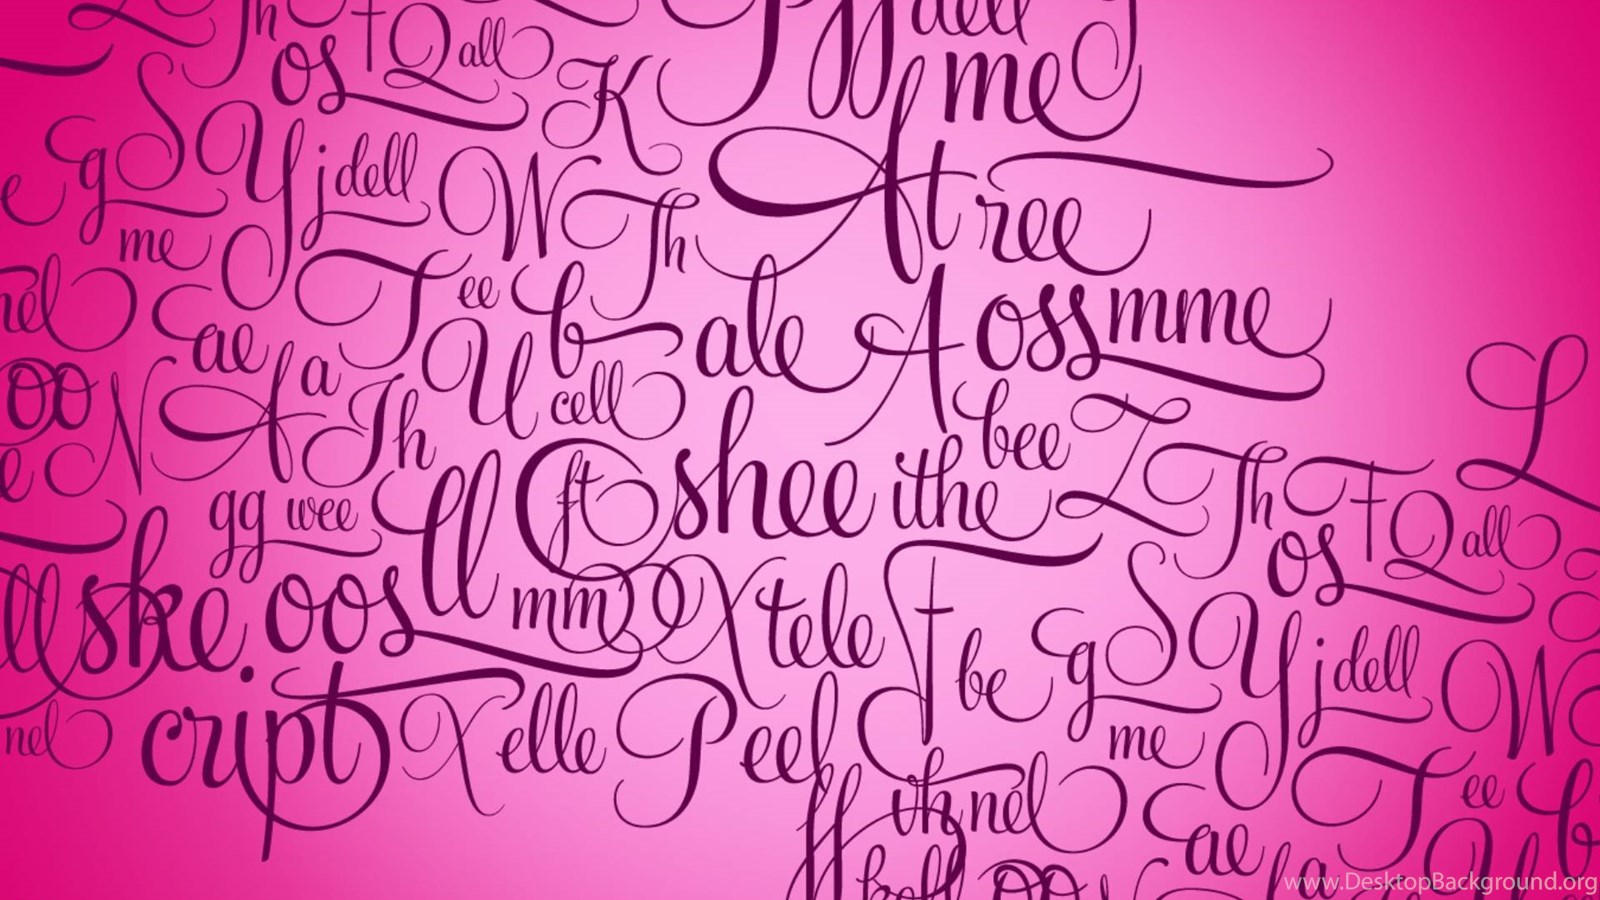 Th T Q all P dell
os K me
g S Y j dell W Th At ree
me
nel Eae T ee b ale A oss mme
oo N A a Th U cell bee Z L
gg wee ll ft shee ithe Th T Q all
os
ske. oos mm X tele be g S Y j dell W
nel cript X elle Peel me
nel Eae T ee b
koll oo a U
www.DesktopBackground.org